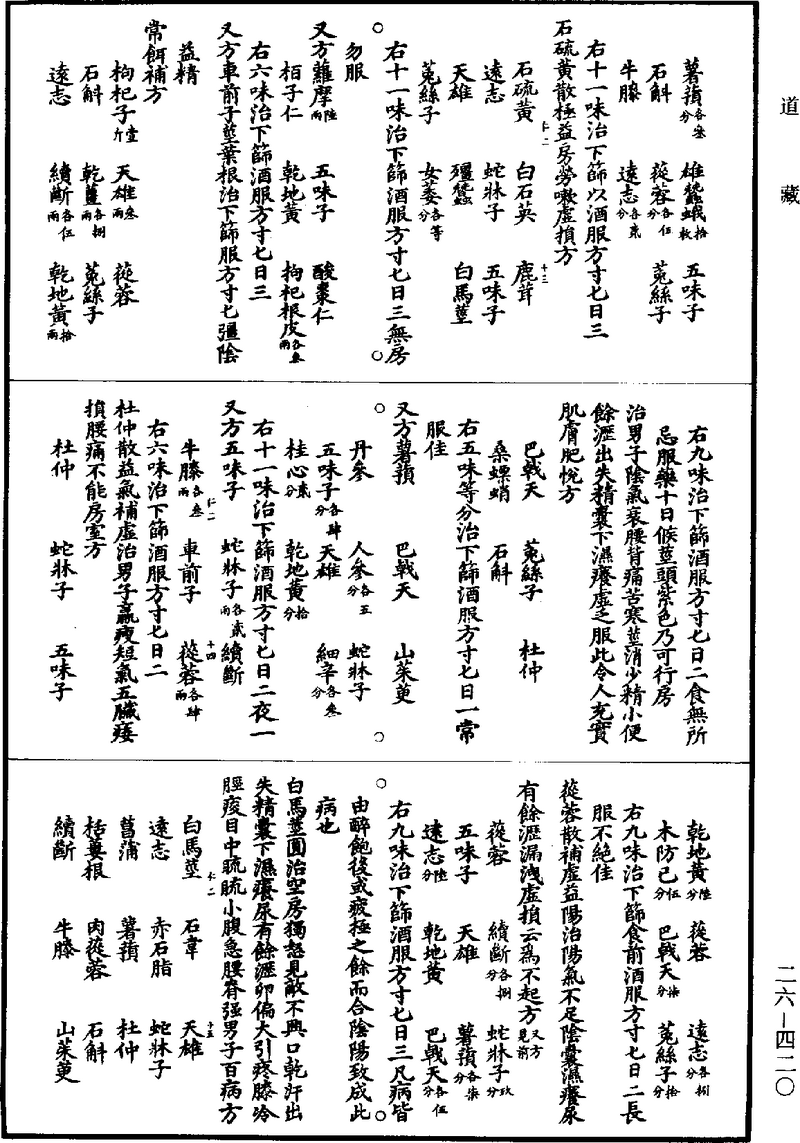 道藏
薯蕷各叁分　雄蠶蛾拾枚　五味子
石斛　蓯蓉各伍分　菟絲子
牛膝　遠志各貳分
右十一味治下篩以酒服方寸匕日三
石硫黄散極益房勞嗽虛損方
石硫黄　白石英　鹿茸
遠志　蛇牀子　五味子
天雄　殭蠶　白馬莖
菟絲子　女萎各等分
右十一味治下篩酒服方寸匕日三無房
勿服
又方蘿摩陸兩　五味子　酸棗仁
栢子仁　乾地黄　枸杞根皮各叁兩
右六味治下篩酒服方寸匕日三
又方車前子莖葉根治下篩服方寸匕彊陰
益精
常餌補方
枸杞子壹斤　天雄叁兩　蓯蓉
石斛　乾薑各捌兩　菟絲子
遠志　續斷各伍兩　乾地黄拾兩
右九味治下篩酒服方寸匕日二食無所
忌服藥十日候莖頭紫色乃可行房
治男子陰氣衰腰背痛苦寒莖消少精小便
餘瀝出失精囊下濕癢虛乏服此令人充實
肌膚肥悅方
巴戟天　菟絲子　杜仲
桑螵蛸　石斛
右五味等分治下篩酒服方寸匕日一常
服佳
又方薯蕷　巴戟天　山茱萸
丹參　人參各五分　蛇牀子
五味子各肆分　天雄　細辛各叁分
桂心貳分　乾地黄拾分
右十一味治下篩酒服方寸匕日二夜一
又方五味子　蛇牀子各貳兩　續斷
牛膝各叁兩　車前子　蓯蓉各肆兩
右六味治下篩酒服方寸匕日二
杜仲散益氣補虛治男子羸瘦短氣五臟痿
損腰痛不能房室方
杜仲　蛇牀子　五味子
乾地黄陸分　蓯蓉　遠志各捌分
木防己伍分　巴戟天柒分　菟絲子拾分
右九味治下篩食前酒服方寸匕日二長
服不絕佳
蓯蓉散補虛益陽治陽氣不足陰囊濕癢尿
有餘瀝漏洩虛損云爲不起方又方見前
蓯蓉　續斷各捌分　蛇牀子玖分
五味子　天雄　薯蕷各柒分
遠志陸分　乾地黄　巴戟天各伍分
右九味治下篩酒服方寸匕日三凡病皆
由醉飽後或疲極之餘而合陰陽致成此
病也
白馬莖圓治空房獨怒見敵不興口乾汗出
失精囊下濕癢尿有餘瀝卵偏大引疼膝冷
脛痠目中䀮䀮小腹急腰脊强男子百病方
白馬莖　石韋　天雄
遠志　赤石脂　蛇牀子
菖蒲　薯蕷　杜仲
栝蔞根　肉蓯蓉　石斛
續斷　牛膝　山茱萸
二六—四二〇